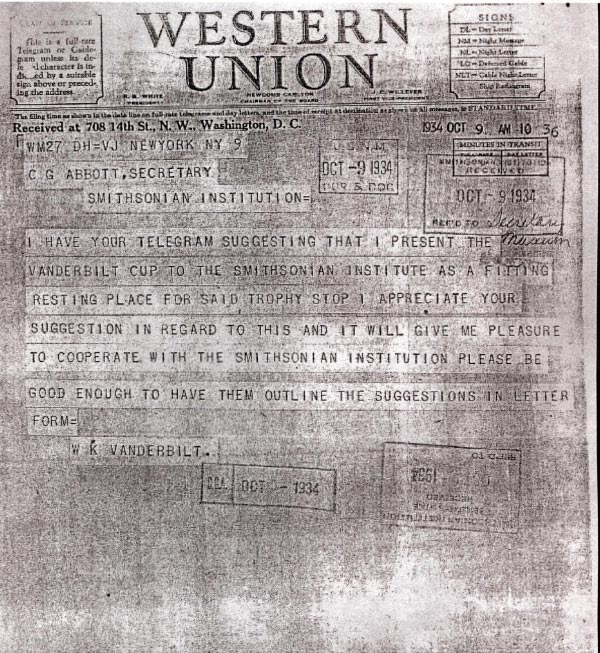 CLASS OF SERVICE
This is a full-rate
Telegram or Cable-
gram unless its de-
character is in-
by a suitable
sign above or preced-
ing the address.
WESTERN
UNION
R. B. WHITE
PRESIDENT
NEWCOMB CARLTON
CHAIRMAN OF THE BOARD
J. C. WILLEVER
FIRST VICE-PRESIDENT
SIGNS
DL = Day Letter
NM = Night Message
NL = Night Letter
LC = Deferred Cable
NLT = Cable Night Letter
Ship Radiogram
The filing time as shown in the date line on full-rate telegrams and day letters, and the time of receipt at destination as shown on all messages, is STANDARD TIME.
Received at 708 14th St., N. W., Washington, D. C.
1934 OCT 9 AM 10 36
MINUTES IN TRANSIT
FULL-RATE
DAY LETTER
WM27 DH=VJ NEWYORK NY 9
U.S.N.M.
OCT -9 1934
C G ABBOTT, SECRETARY
SMITHSONIAN INSTITUTION=
RECEIVED
OCT -9 1934
REF'D TO Secretary
Museum
I HAVE YOUR TELEGRAM SUGGESTING THAT I PRESENT THE
VANDERBILT CUP TO THE SMITHSONIAN INSTITUTE AS A FITTING
RESTING PLACE FOR SAID TROPHY STOP I APPRECIATE YOUR
SUGGESTION IN REGARD TO THIS AND IT WILL GIVE ME PLEASURE
TO COOPERATE WITH THE SMITHSONIAN INSTITUTION PLEASE BE
GOOD ENOUGH TO HAVE THEM OUTLINE THE SUGGESTIONS IN LETTER
FORM=
W K VANDERBILT.
OCT 9 - 1934
OCT 9
1934
RECEIVED